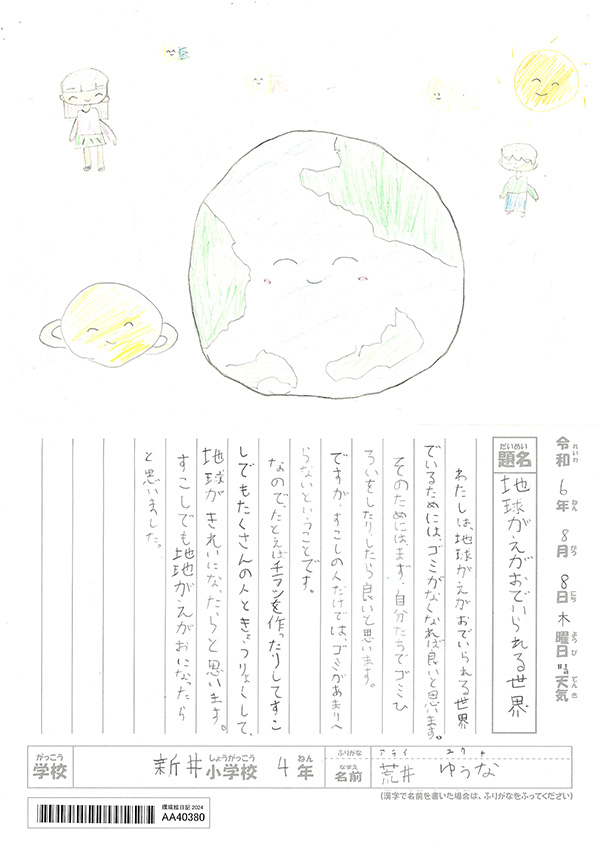 令和6年8月8日木曜日晴天気
れいわ ねん がつ にち ようび てんき
だいめい
題名 地球がえがおでいられる世界
わたしは、地球がえがおでいられる世界
でいるためには、ゴミがなくなれば良いと思います。
そのためには、まず、自分たちでゴミひ
ろいをしたり、したら良いと思います。
ですが、すこしの人だけでは、ゴミがあまりへ
らないということです。
なので、たとえばチラシを作ったりしてすこ
しでもたくさんの人ときょうりょくして、
地球がきれいになったらと思います。
すこしでも地地がえがおになったら
と思いました。
がっこう
学校
新井
しょうがっこう
小学校
4
ねん
年
ふりがな
アライ
なまえ
名前
荒井 ゆうな
(漢字で名前を書いた場合は、ふりがなをふってください)
環境絵日記 2024
AA40380